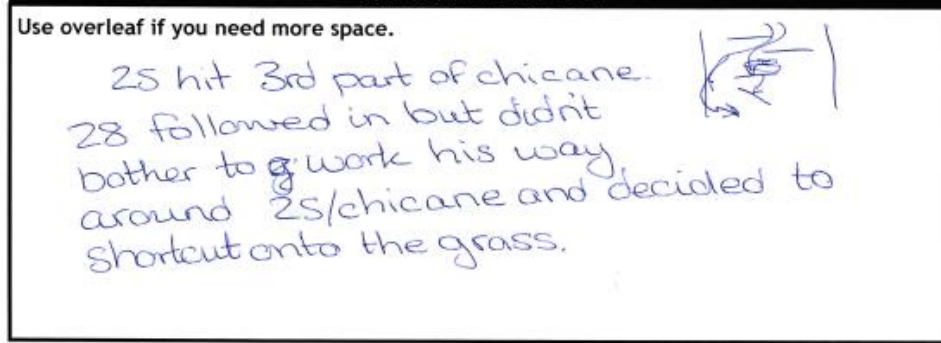 Use overleaf if you need more space.
25 hit 3rd part of chicane.
28 followed in but didn't
bother to work his way
around 25/chicane and decided to
shortcut onto the grass.